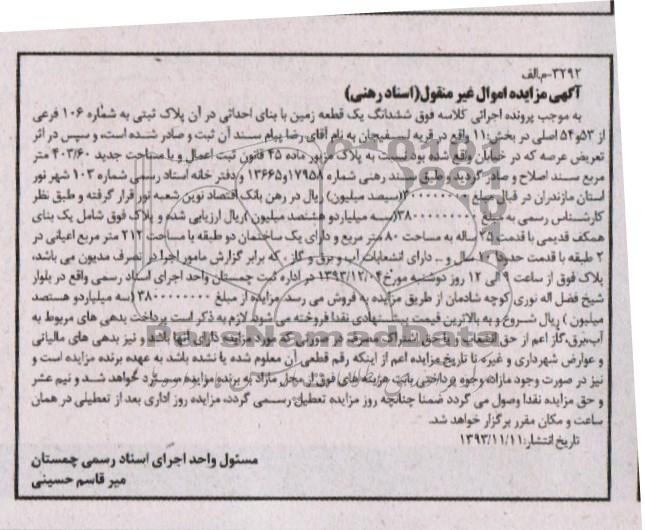 ۳۲۹۲-م.الف
آگهی مزایده اموال غیر منقول(اسناد رهنی)
به موجب پرونده اجرائی کلاسه فوق ششدانگ یک قطعه زمین با بنای احداثی در آن پلاک ثبتی به شماره ۱۰۶ فرعی
از ۵۳و۵۴ اصلی در بخش ۱۱ واقع در قریه لسفیجان به نام آقای رضا پیام سند آن ثبت و صادر شده است، و سپس در اثر
تعریض عرصه که در خیابان واقع شده بود نسبت به پلاک مزبور ماده ۴۵ قانون ثبت اعمال و با مساحت جدید ۴۰۳/۶۰ متر
مربع سند اصلاح و صادر گردید، و طبق سند رهنی شماره ۱۷۹۵۸و۱۳۶۶۵ و دفتر خانه اسناد رسمی شماره ۱۰۳ شهر نور
استان مازندران در قبال مبلغ (سیصد میلیون) ریال در رهن بانک اقتصاد نوین شعبه نور قرار گرفته و طبق نظر
کارشناس رسمی به مبلغ ۳۸۰۰۰۰۰۰۰۰(سه میلیاردو هشتصد میلیون )ریال ارزیابی شده و پلاک فوق شامل یک بنای
همکف قدیمی با قدمت ۲۵ ساله به مساحت ۸۰ متر مربع و دارای یک ساختمان دو طبقه با مساحت ۲۱۲ متر مربع اعیانی در
۲ طبقه با قدمت حدودا ۱۰ سال و .. دارای انشعابات آب و برق و گاز . که برابر گزارش مامور اجرا در تصرف مدیون می باشد،
پلاک فوق از ساعت ۹ الی ۱۲ روز دوشنبه مورخ ۱۳۹۳/۱۲/۰۴ در اداره ثبت چمستان واحد اجرای اسناد رسمی واقع در بلوار
شیخ فضل اله نوری کوچه شادمان از طریق مزایده به فروش می رسد. مزایده از مبلغ ۳۸۰۰۰۰۰۰۰۰(سه میلیاردو هستصد
میلیون ) ریال شروع و به بالاترین قیمت پیشنهادی نقدا فروخته می شود. لازم به ذکر است پرداخت بدهی های مربوط به
آب،برق،گاز اعم از حق انشعاب و یا حق اشتراک مصرف در صورتی که مورد مزایده دارای آنها باشد و نیز بدهی های مالیاتی
و عوارض شهرداری و غیره تا تاریخ مزایده اعم از اینکه رقم قطعی آن معلوم شده یا نشده باشد به عهده برنده مزایده است و
نیز در صورت وجود مازاد، وجوه پرداختی بابت هزینه های فوق از محل مازاد به برنده مزایده مسترد خواهد شد و نیم عشر
و حق مزایده نقدا وصول می گردد ضمنا چنانچه روز مزایده تعطیل رسمی گردد، مزایده روز اداری بعد از تعطیلی در همان
ساعت و مکان مقرر برگزار خواهد شد.
تاریخ انتشار:۱۳۹۳/۱۱/۱۱
مسئول واحد اجرای اسناد رسمی چمستان
میر قاسم حسینی
ParsNamadData